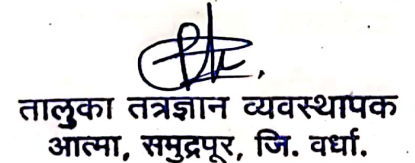 तालुका तत्रज्ञान व्यवस्थापक
आत्मा, समुद्रपूर, जि. वर्धा.